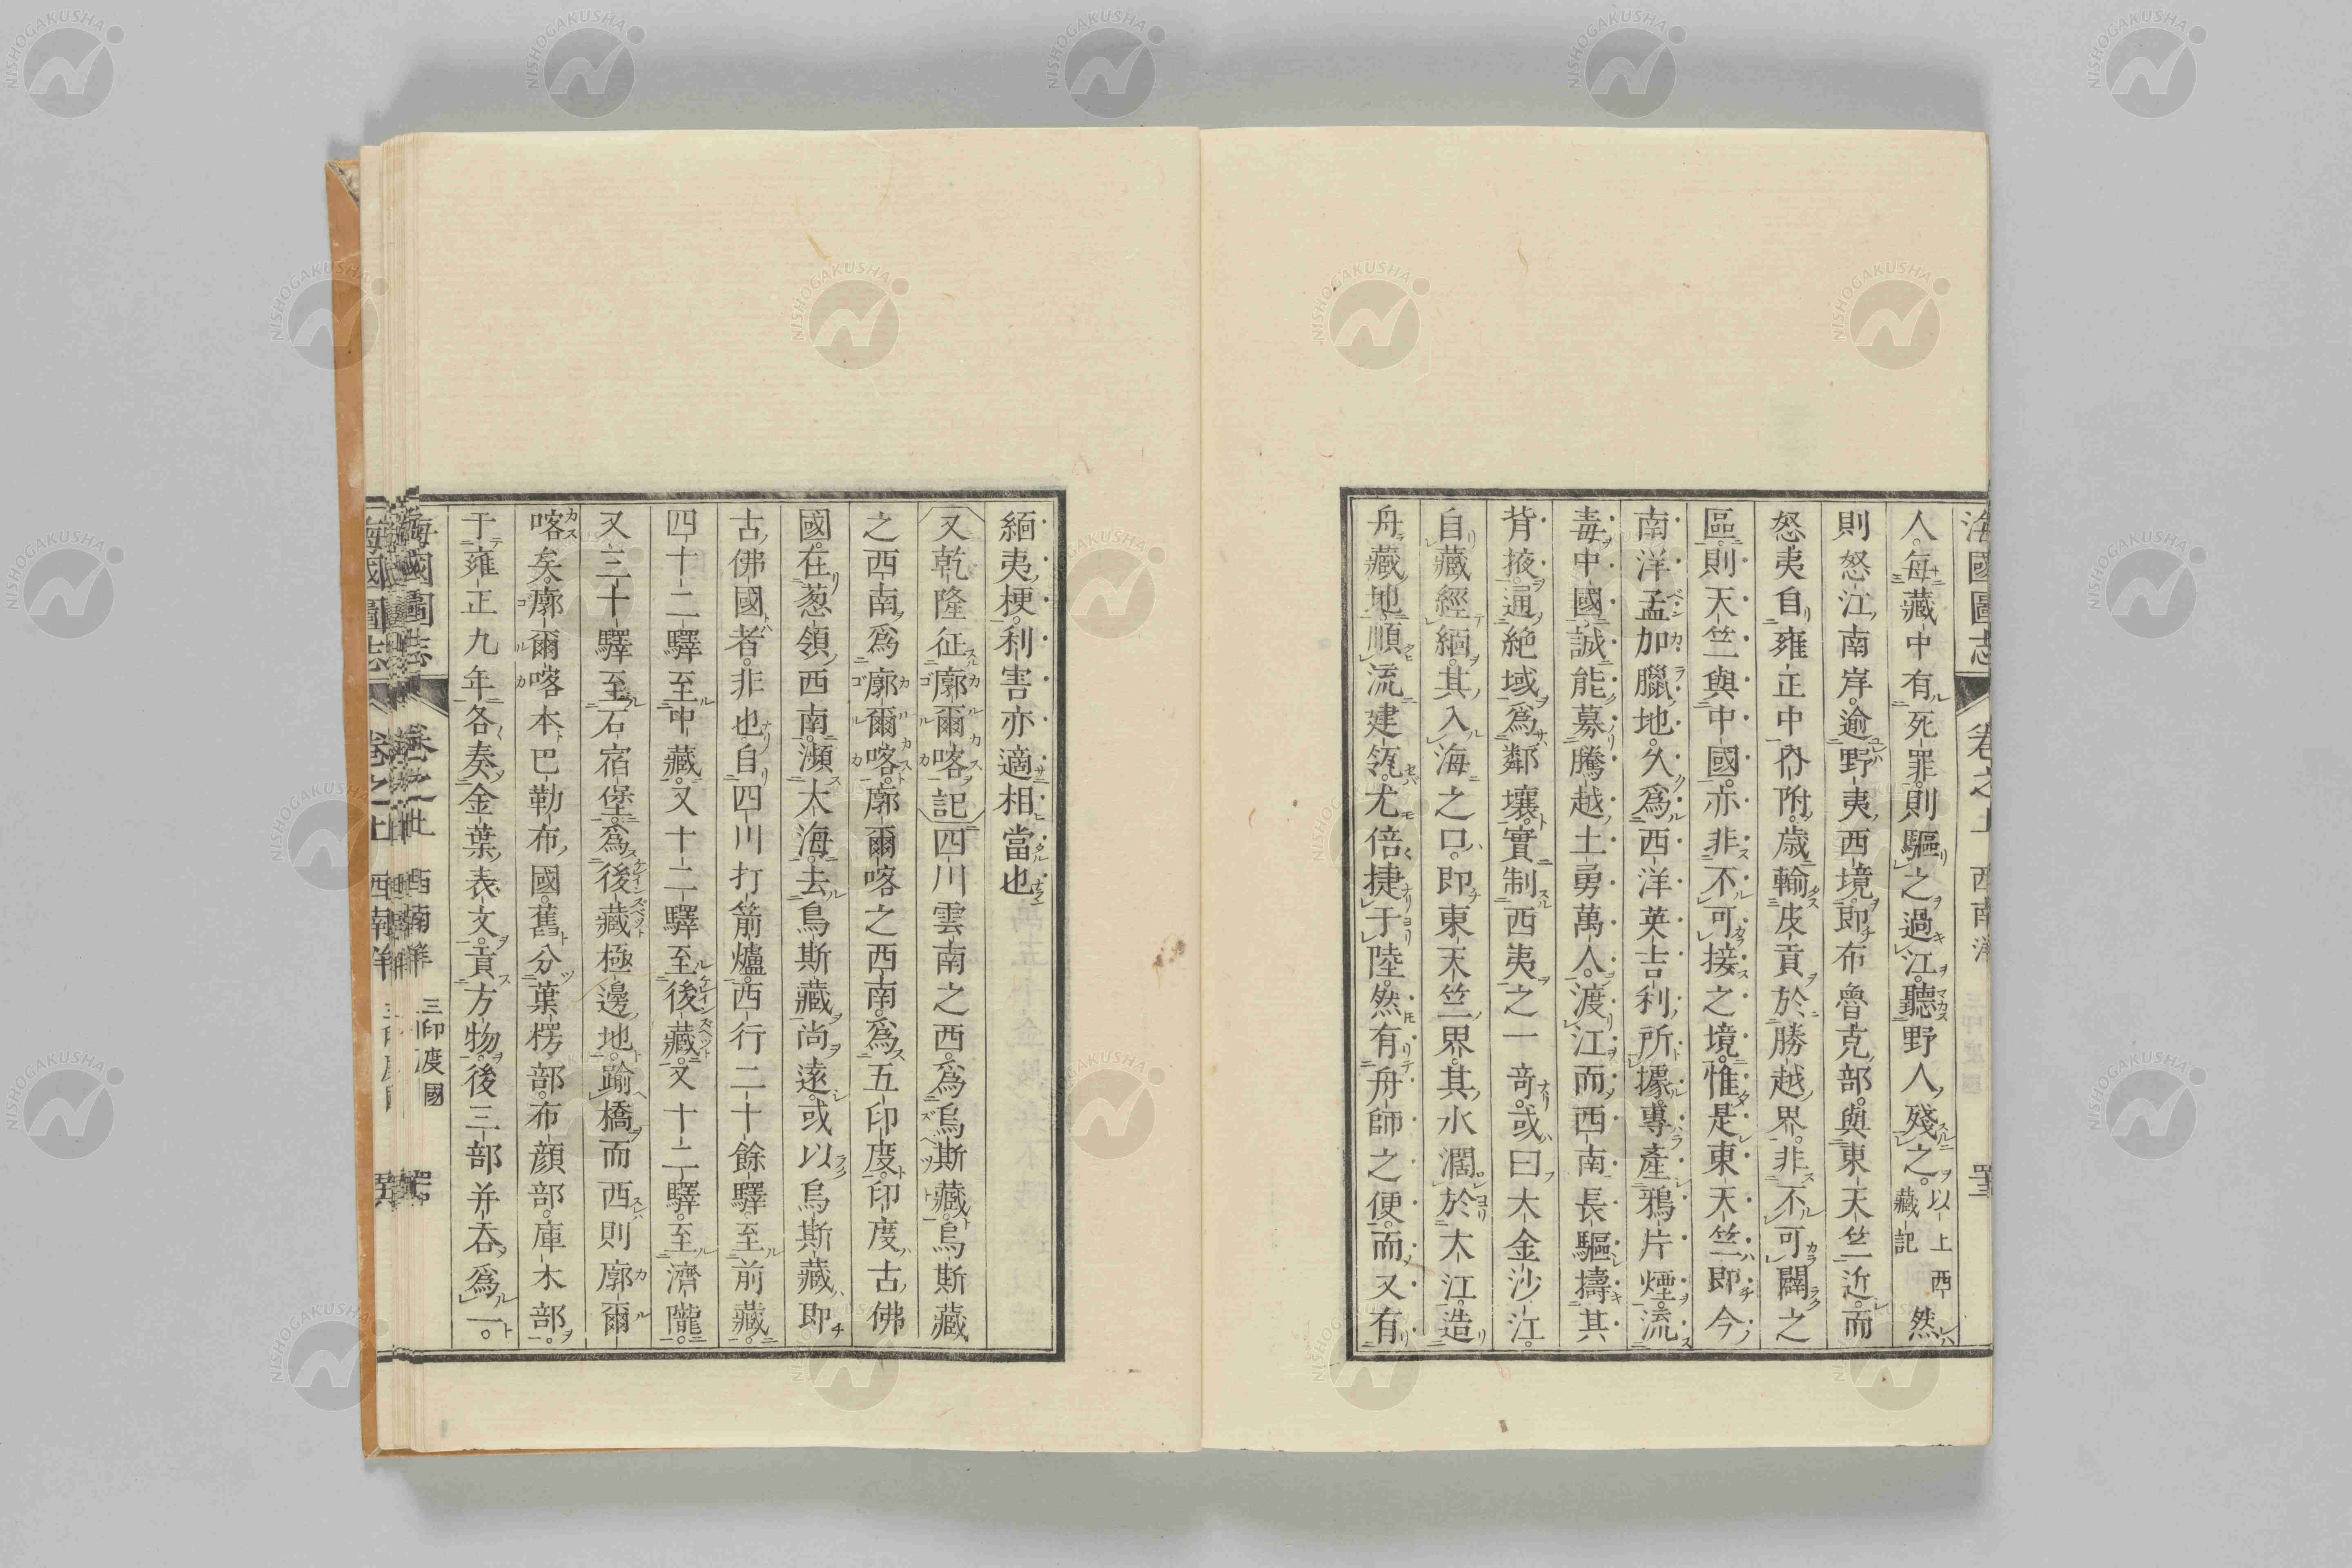 海國圖志 卷之上 西南洋
人。每藏中有死罪。則驅之過江。聽野人殘之。以上西藏記然
則怒江南岸。逾野夷西境。即布魯克部。與東天竺近。而
怒夷自雍正中內附。歲輸皮貢於勝越界。非不可闢之
區。則天竺與中國。亦非不可接之境。惟是東天竺即今
南洋孟加臘地。久為西洋英吉利所據。專產鴉片煙。流
毒中國。誠能募騰越土勇萬人。渡江而西南長驅擣其
背掖。通絕域為鄰壤。實制西夷之一奇。或曰大金沙江。
自藏經緬。其入海之口。即東天竺界。其水濶於大江。造
舟藏地。順流建瓴。尤倍捷于陸。然有舟師之便。而又有
緬夷梗。利害亦適相當也
又乾隆征廓爾喀記四川雲南之西。為烏斯藏。烏斯藏
之西南為廓爾喀。廓爾喀之西南。為五印度。印度古佛
國。在葱領西南。瀕大海。去烏斯藏尚遠。或以烏斯藏即
古佛國者。非也。自四川打箭爐。西行二十餘驛至前藏。
四十二驛至中藏。又十二驛至後藏。又十二驛至濟隴。
又三十驛至石宿堡。為後藏極邊地。踰橋而西則廓爾
喀矣。廓爾喀本巴勒布國。舊分葉楞部。布顔部。庫木部。
于雍正九年各奏金葉表文。貢方物。後三部并吞為一。
海國圖志 卷之 西南洋 三印度國